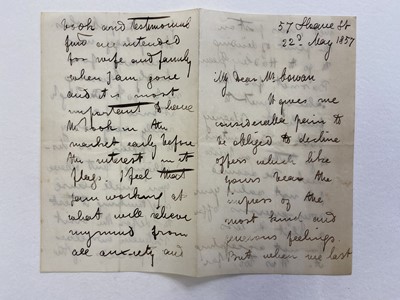 57 Sloane St
22d May 1857
My Dear Mr Cowan
It gives me
considerable pain to
be obliged to decline
offers which like
yours bear the
impress of the
most kind and
generous feelings.
But when we last
book and testimonial
fund are intended
for wife and family
when I am gone
and it is most
important I have
the book in the
market early before
the interest in it
flags. I feel that
I am working at
what will relieve
my mind from
all anxiety and